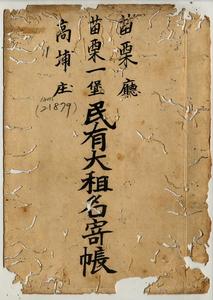 苗栗廳
苗栗一堡民有大租名寄帳
高埔庄
(21879)